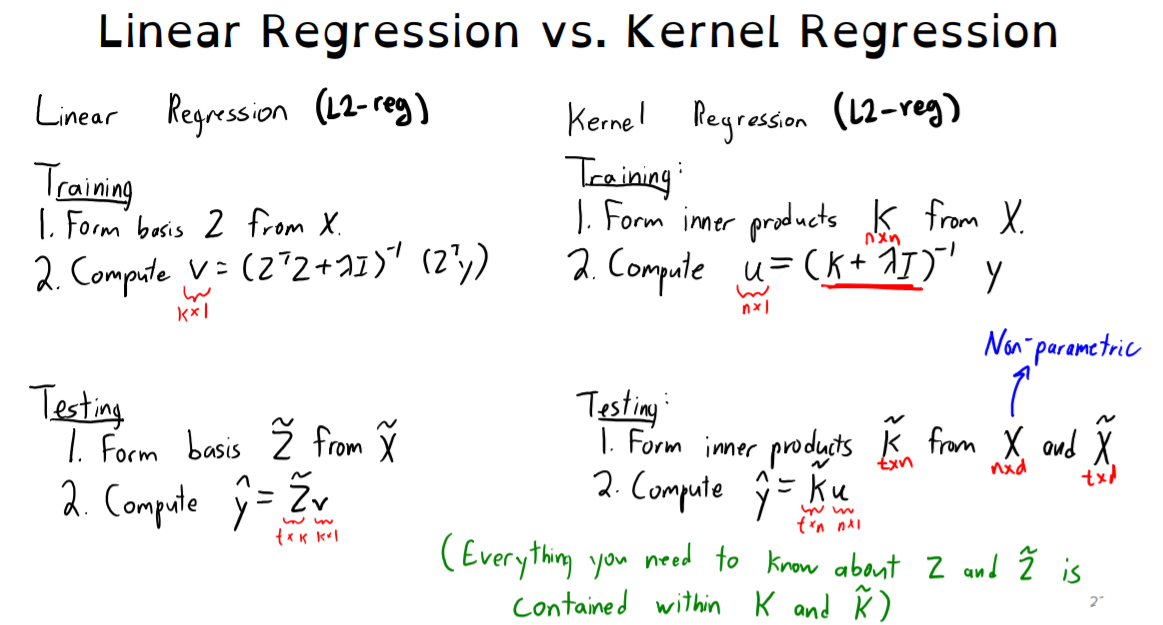 Linear Regression vs. Kernel Regression
Linear Regression (L2-reg)
Training
1. Form basis Z from X.
2. Compute v = (ZᵀZ+λI)⁻¹ (Zᵀy)
k×1
Testing
1. Form basis Z̃ from X̃
2. Compute ŷ = Z̃v
t×k k×1
Kernel Regression (L2-reg)
Training:
1. Form inner products K from X.
n×n
2. Compute u = (K + λI)⁻¹ y
n×1
Non-parametric
Testing:
1. Form inner products K̃ from X and X̃
t×n n×d t×d
2. Compute ŷ = K̃u
t×n n×1
(Everything you need to know about Z and Z̃ is
contained within K and K̃)